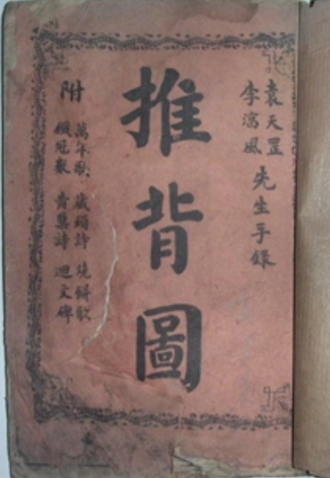 袁天罡
李湻風
先生手錄
推背圖
附
萬年歌 藏頭詩 燒餅歌
黃蘗詩 迴文碑